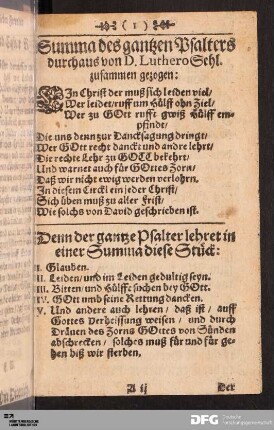 ( 1 )
Summa des gantzen Psalters
durchaus von D. Luthero Sehl.
zusammen gezogen:
EIn Christ der muß sich leiden viel/
Wer leidet/ ruff um Hülff ohn Ziel/
Wer zu GOtt rufft gwiß Hülff em-
pfindt/
Die uns denn zur Dancksagung dringt/
Wer GOtt recht danckt und andre lehrt/
Die rechte Lehr zu GOTT bekehrt/
Und warnet auch für GOttes Zorn/
Daß wir nicht ewig werden verlohrn.
In diesem Circkl ein jeder Christ/
Sich üben muß zu aller Frist/
Wie solchs von David geschrieben ist.
Denn der gantze Psalter lehret in
einer Summa diese Stück:
I. Glauben.
II. Leiden/ und im Leiden gedultig seyn.
III. Bitten/ und Hülffe suchen bey GOtt.
IV. GOtt umb seine Rettung dancken.
V. Und andere auch lehren/ daß ist/ auff
Gottes Verheissung weisen/ und durch
Dräuen des Zorns GOttes von Sünden
abschrecken/ solches muß für und für ge-
hen biß wir sterben.
A ij
Der
DFG Deutsche
Forschungsgemeinschaft